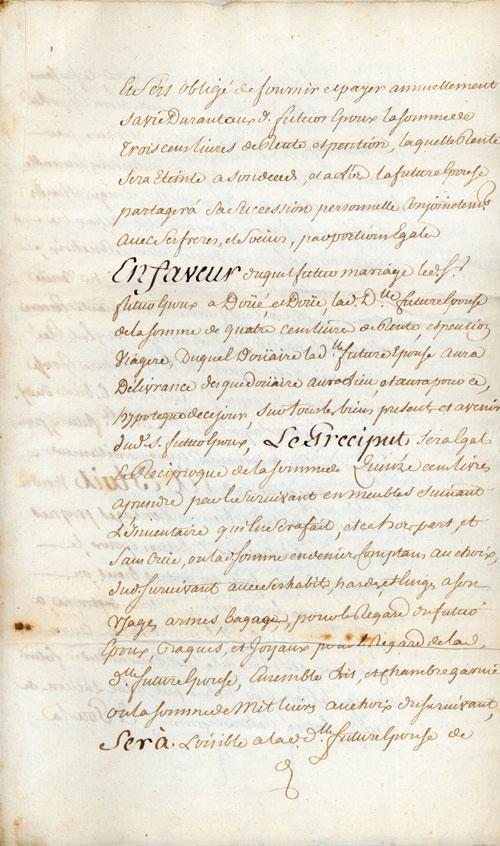 Et Sera obligé de fournir et payer annuellement
Sa vie Durant aux d. futur Epoux la somme de
Trois cens livres de Rente et pention, laquelle Rente
Sera Eteinte a son deced, et a lors la future Epouse
partagera Sa Succession personnelle Conjointemt
avec Ses freres, et Soeurs, par portion Egale
En faveur duquel futur mariage led. Sr.
futur Epoux a Doüé, et Doüe lad. Dlle future Epouse
de la somme de quatre cens livres de Rente, et pention
Viagere, Duquel Doüaire lad. dlle future Epouse aura
Délivrance des que doüaire aura Lieu, et aura pour ce,
hypoteque de ce jour, Sur tous les biens present et avenir
dud. s. futur Epoux, Le Preciput Sera Egal
et Reciproque de la somme de Quinze cens livres
a prendre par le Survivant en meubles Suivant
L'inventaire qui en Sera fait, et ce hors part, et
Sans Crüe, ou lad. somme en denier Comptans au choix,
dud. Survivant avec Ses habits, hardes, et linges a son
Usage, armes, Bagages, pour le Regard du futur
Epoux, Bagues, et Joyaux pour le Regard de lad.
dlle future Epouse, Ensemble Lit, et chambre garnie
ou la somme de Mil livres au choix du Survivant,
Sera Loisible a lad. dlle future Epouse de